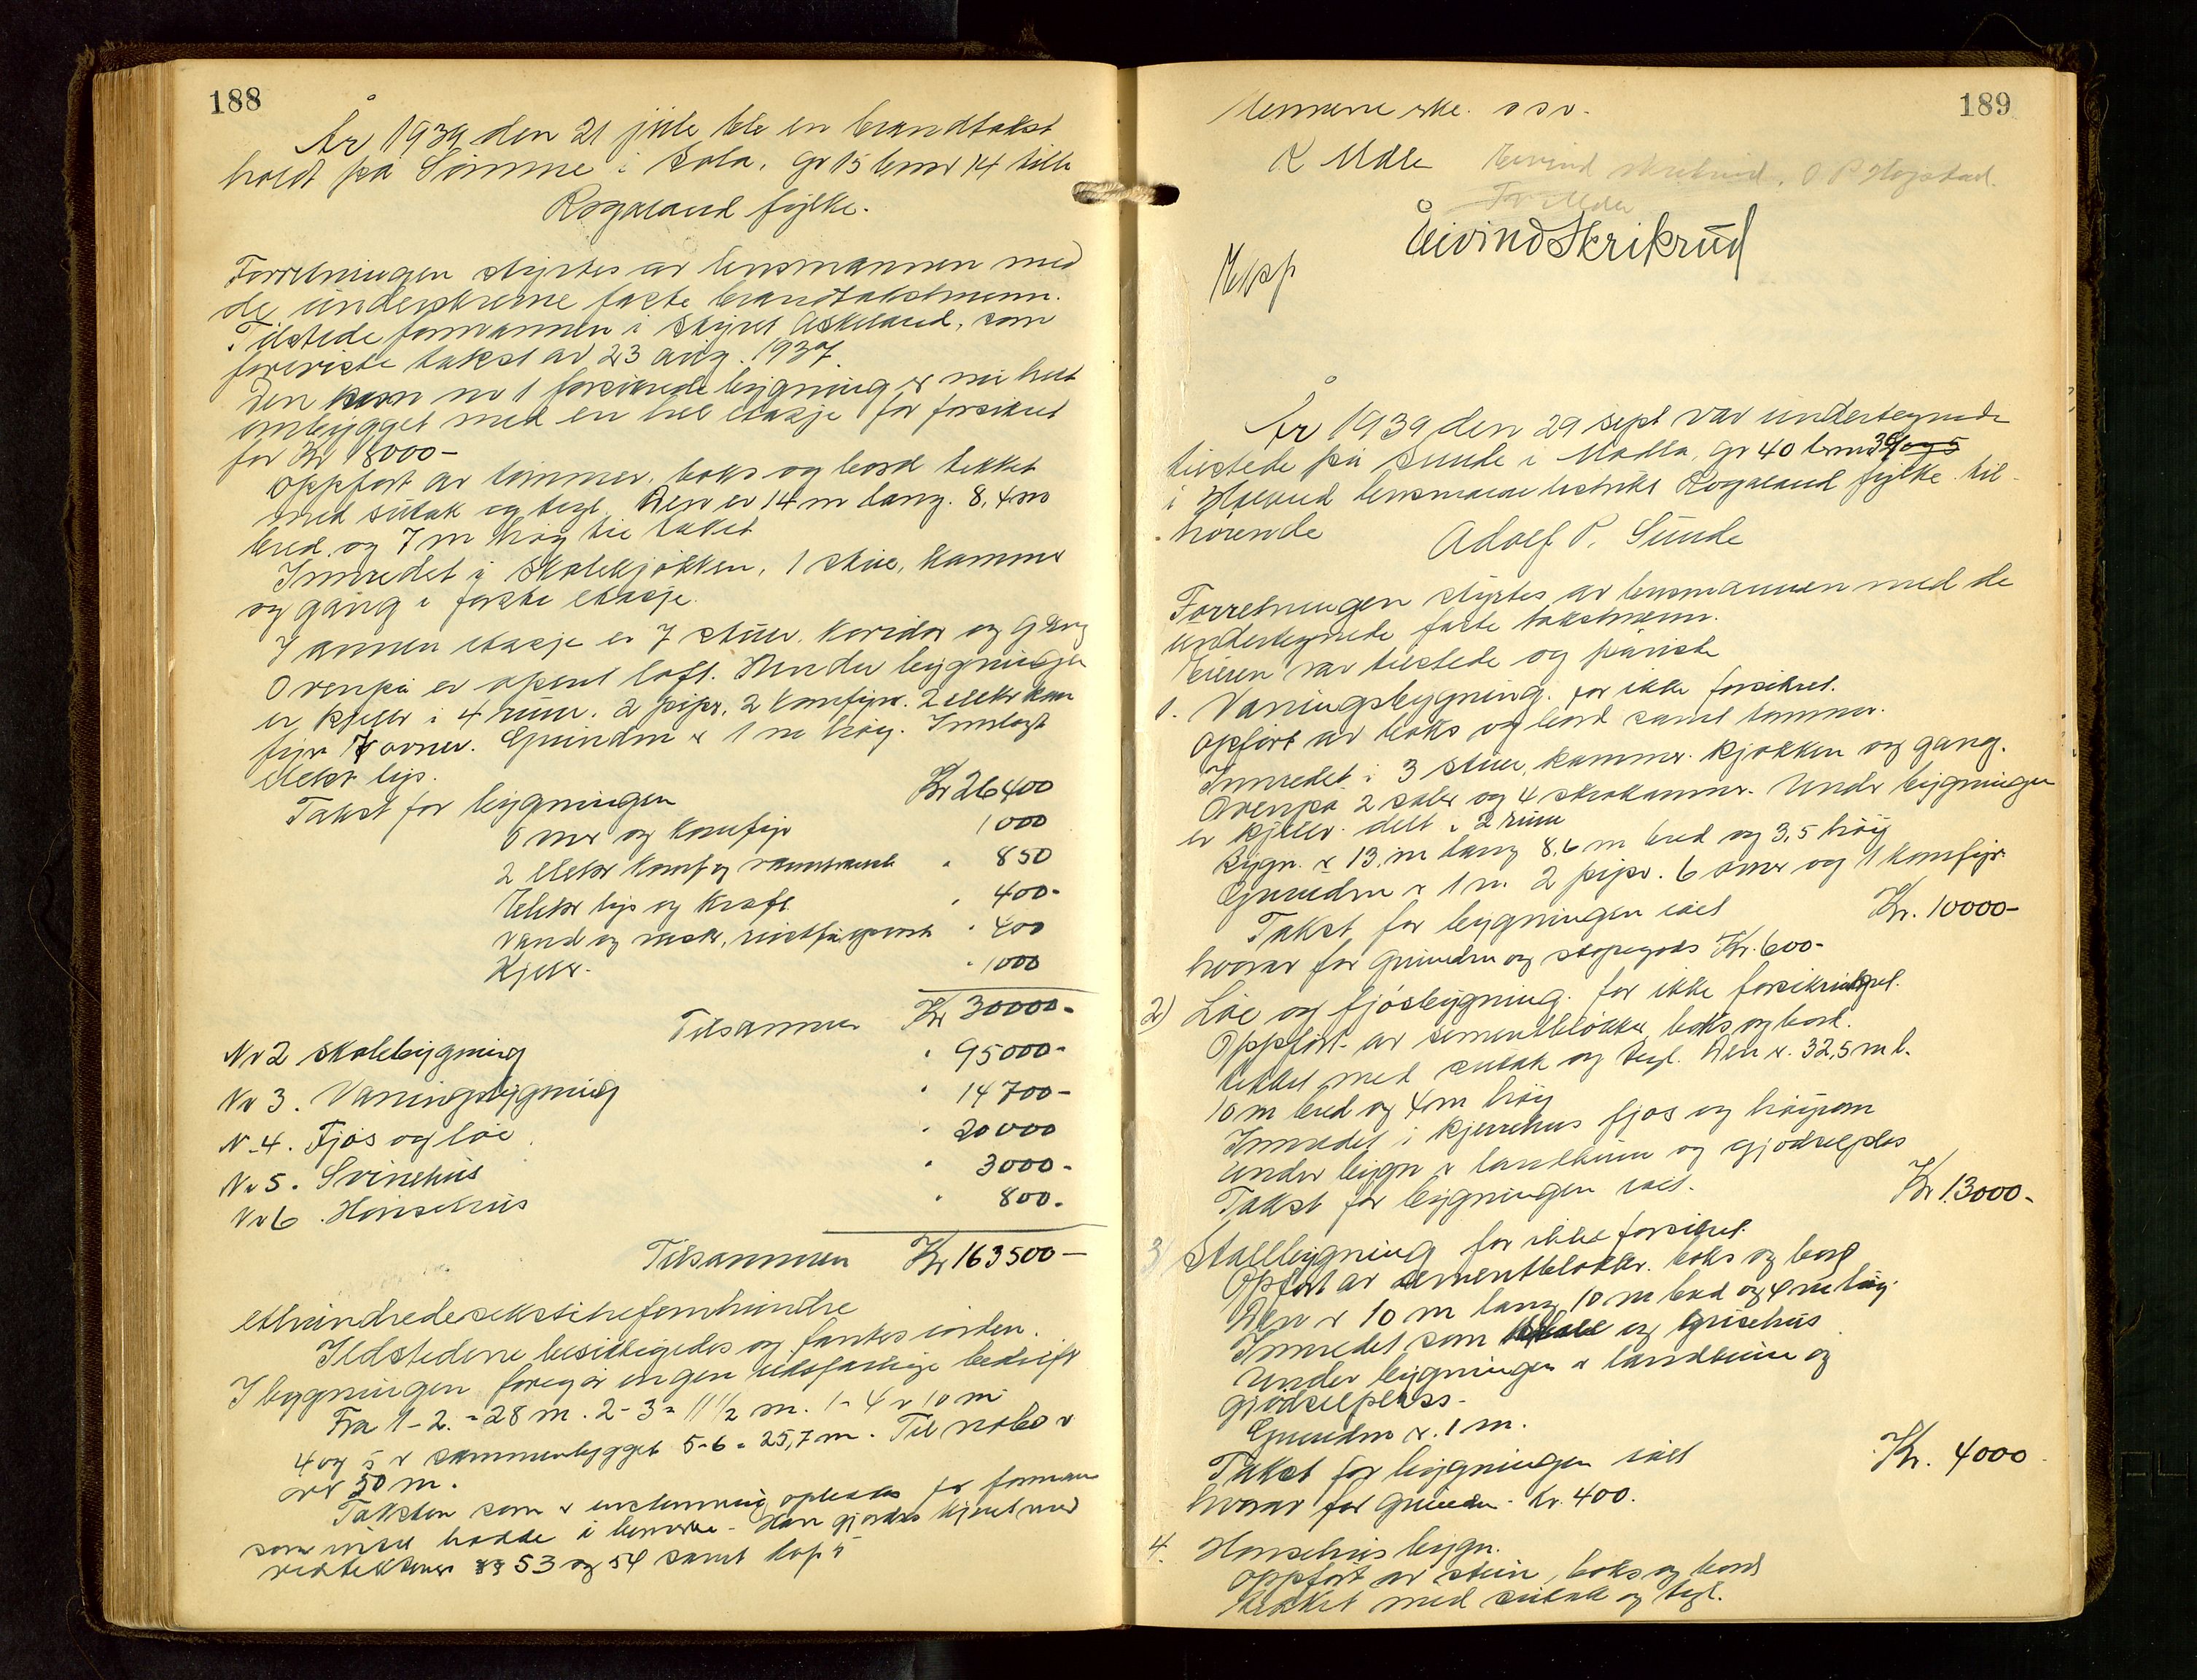 188
År 1939 den 21 juli ble en brandtakst
holdt på Sømme i Sola, gr 15 bnr 14 tilh
Rogaland fylke.
Forretningen styrtes av lensmannen med
de underskrevne faste brandtakstmenn.
Tilstede formannen i styret Askeland, som
foreviste takst av 23 aug. 1937.
Den som no 1 forsikrede bygning er nu helt
ombygget med en hel etasje før forsikret
for Kr 18000-
Oppført av tømmer, boks og bord tekket
med sutak og tegl. Den er 14 m lang. 8,4 m
bred og 7 m høg til taket
Innredet i skolekjøkken, 1 stue, kammer
og gang i første etasje.
I annen etasje er 7 stuer, koridor og gang
Ovenpå er åpent loft. Under bygningen
er kjeller i 4 rum. 2 piper, 2 komfyrer. 2 elektr kom
fyr 7 ovner. Grundm er 1 m høy. Innlagt
elektr lys.
Takst for bygningen Kr 26400
Omr og komfyr 1000
2 elektr komf og " 850
Elektr lys og kraft " 400-
Vand og vask, " 400
Kjeller. " 1000
Tilsammen Kr 30000-
Nr 2 Skolebygning " 95000-
Nr 3. Vaningsbygning " 14700-
N-4. Fjøs og løe " 20000
Nr 5. Svinehus " 3000-
Nr 6. Hønsehus " 800-
Tilsammen Kr 163500-
etthundredesekstitrefemhundre
Ildstedene besiktigedes og fantes iorden.
I bygningen foregår ingen ildsfarlige bedrift
Fra 1-2. = 28 m. 2-3 = 11 1/2 m. 1-4 er 10 m
4 og 5 er sammenbygget 5-6 = 25,7 m. Til nabo er
over 50 m.
Taksten som er enstemmig oplestes for formann
som intet hadde å bemerke. Han gjordes kjent med
vedtektenes §§ 53 og 54 samt kap 5
189
K Mdle Eivind Skrikrud, O P Hogstad.
Eivind Skrikrud
Eksp
År 1939 den 29 sept var undertegnede
tilstede på Sunde i Madla, gr 40 bnr 3 og 5
i Håland lensmanns distrikt Rogaland fylke til-
hørende
Adolf P. Sunde
Forretningen styrtes av lensmannen med de
undertegnede faste takstmenn.
Eieren var tilstede og påviste
1. Vaningsbygning. før ikke forsikret.
Opført av boks og bord samt tømmer.
Innredet i 3 stuer, kammer, kjøkken og gang.
Ovenpå 2 saler og 4 skrakammer. Under bygningen
er kjeller delt i 2 rum
Bygn. er 13 m lang 8,6 m bred og 3,5 høy
Grundm er 1 m. 2 piper. 6 ovner og 1 komfyr.
Takst for bygningen ialt Kr. 10000-
hvorav for grundm og støpegods Kr. 600-
2) Løe og fjøsbygning. før ikke forsikret.
Oppført av sementblokker, boks og bord.
tekket med sutak og tegl. Den er 32,5 m l.
10 m bred og 4 m høy
Innredet i kjerrehus fjøs og høyrom
Under bygn er landkum og gjødselplas
Takst for bygningen ialt. Kr 13000-
3) Stallbygning før ikke forsikret
Opført av sementblokker. boks og bord
Den er 10 m lang 10 m bred og 4 m høy.
Innredet som stall og grisehus
Under bygningen er landkum og
gjødselplass.
Grundm er 1 m.
Takst for bygningen ialt Kr. 4000
hvorav for grundm. Kr. 400.
4. Hønsehus bygn.
Oppført av stein, boks og bord
tekket med sutak og tegl.